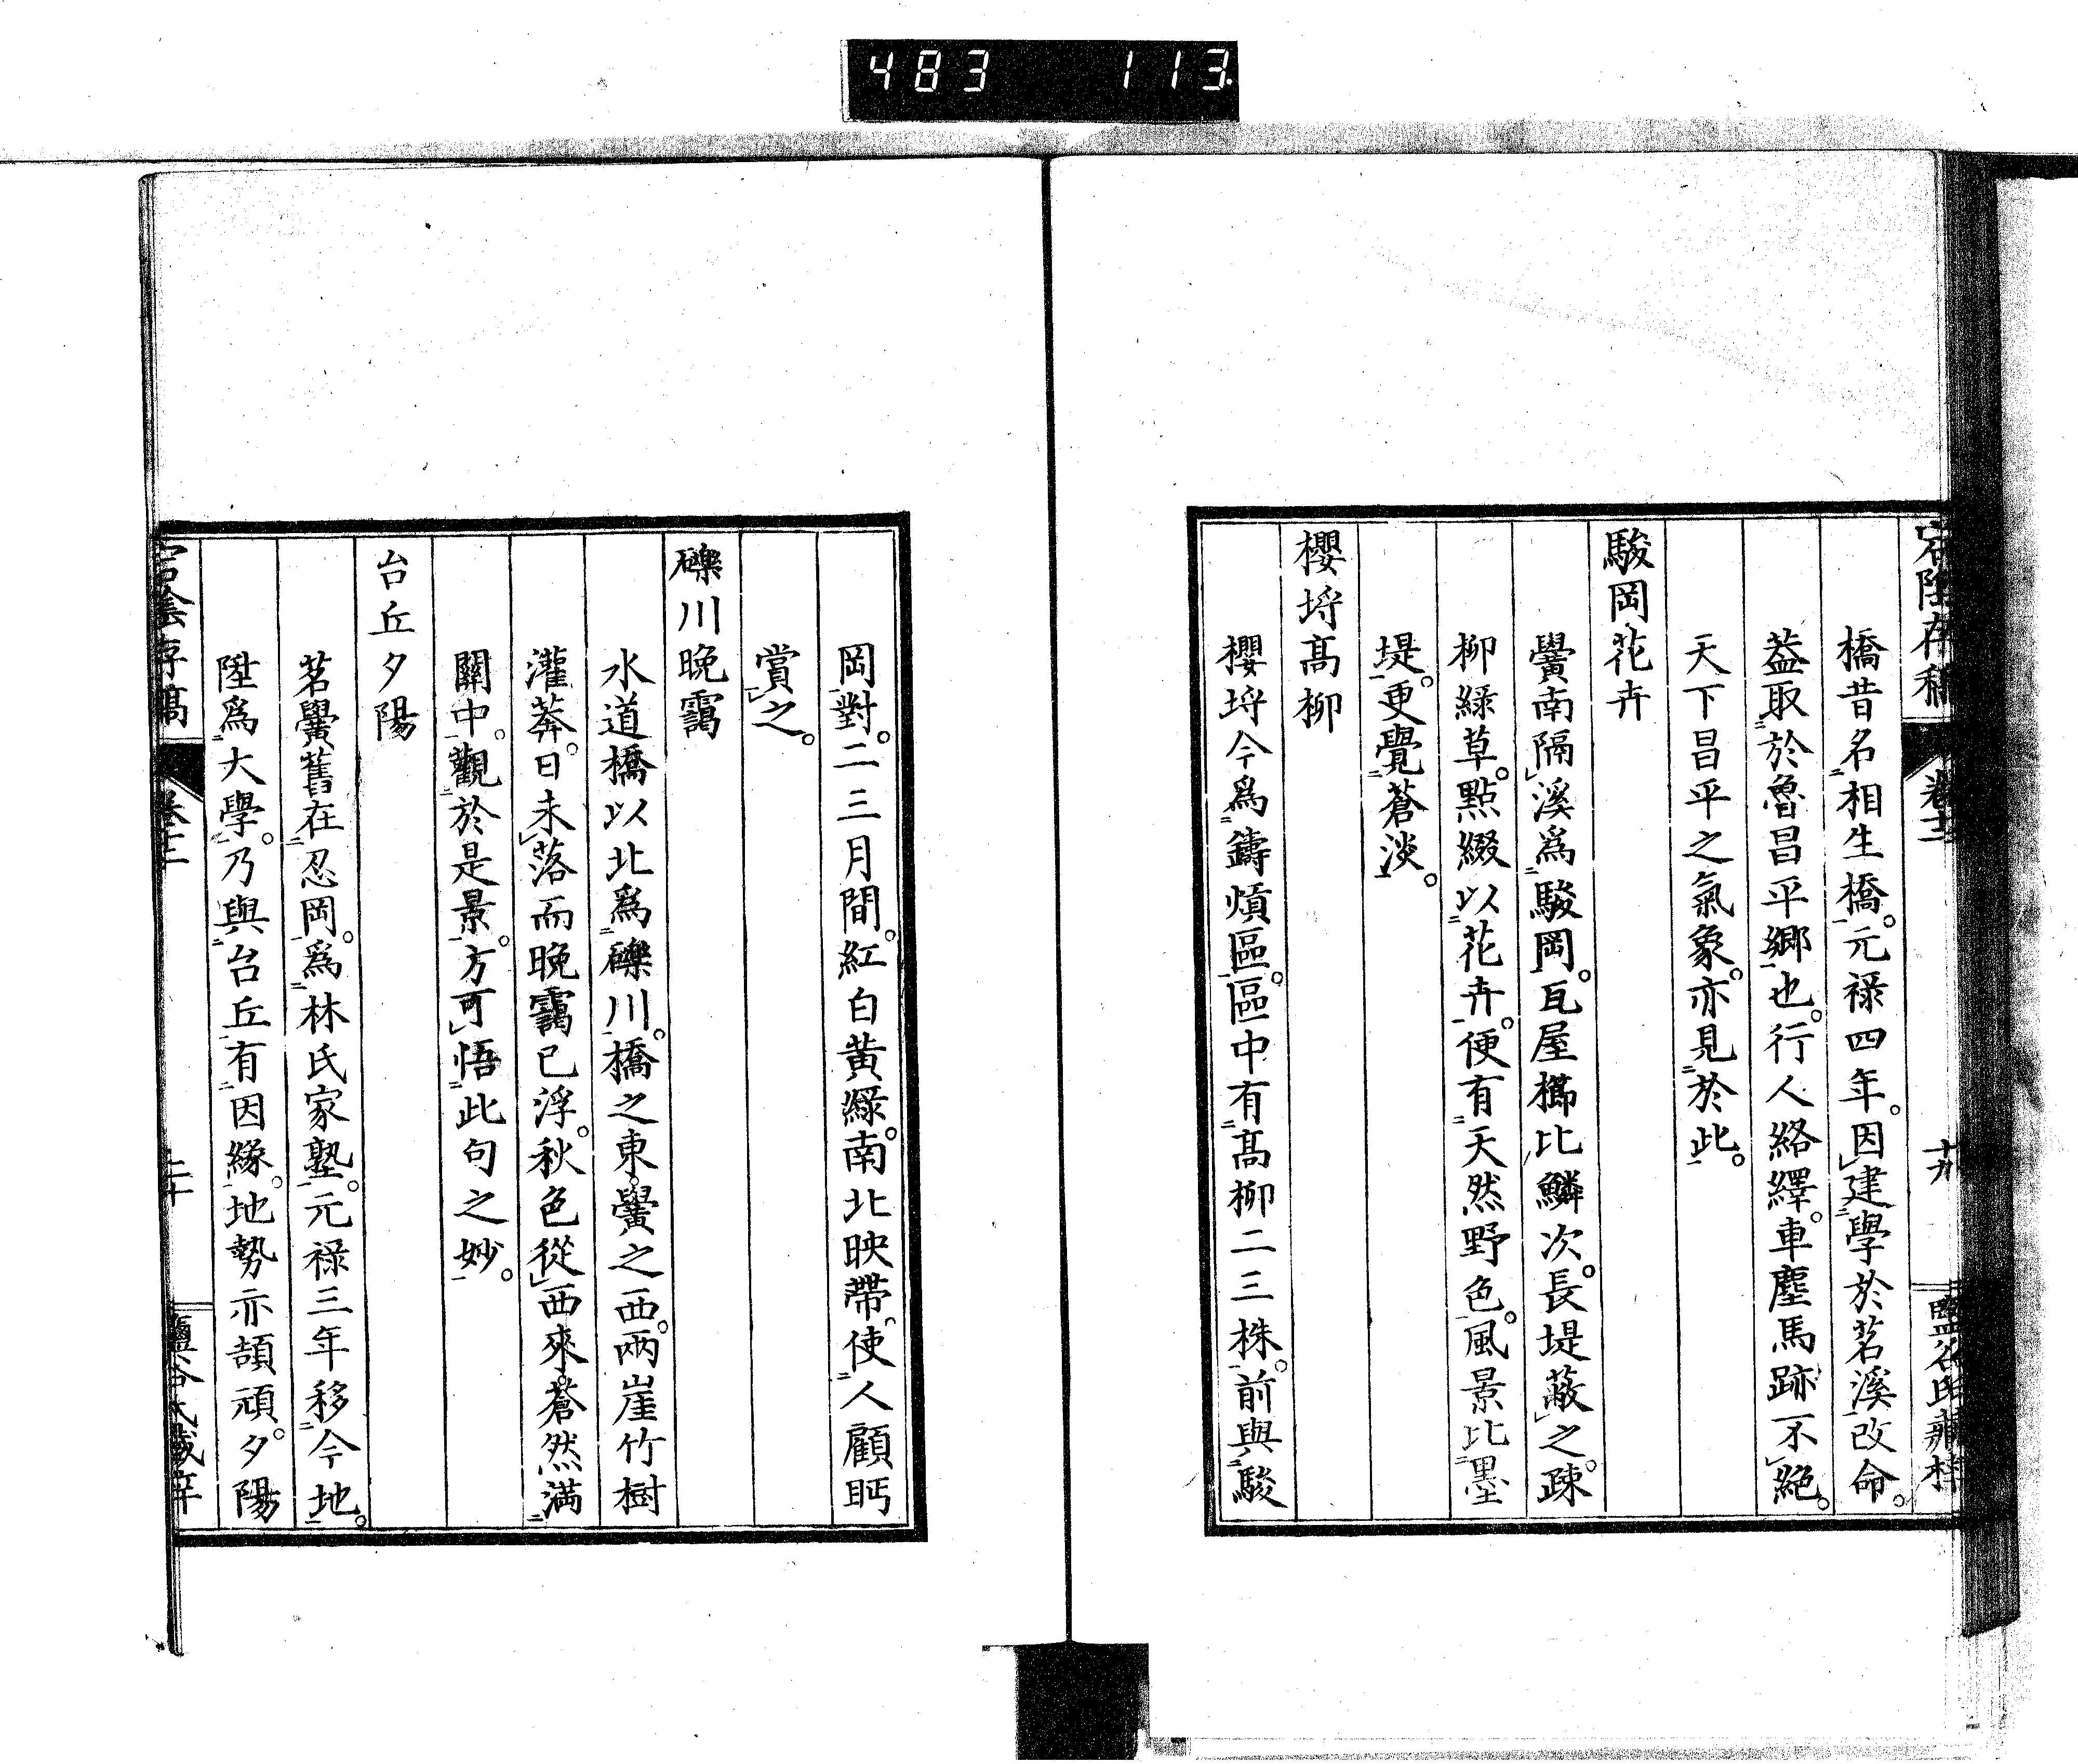 483 113
宕陰存稿 卷十二 十九 鹽谷氏藏梓
橋昔名相生橋。元祿四年。因建學於茗溪改命。
葢取於魯昌平鄉也。行人絡繹。車塵馬跡不絕。
天下昌平之氣象。亦見於此。
駿岡花卉
黌南隔溪爲駿岡。瓦屋櫛比鱗次。長堤蔽之。疎
柳綠草。點綴以花卉。便有天然野色。風景比墨
堤。更覺蒼淡。
櫻埒高柳
櫻埒今爲鑄熕區。區中有高柳二三株。前與駿
岡對。二三月間。紅白黃綠。南北映帶。使人顧眄
賞之。
礫川晚靄
水道橋以北爲礫川。橋之東。黌之西。兩崖竹樹
灌莽。日未落而晚靄已浮。秋色從西來。蒼然滿
關中。觀於是景。方可悟此句之妙。
台丘夕陽
茗黌舊在忍岡。爲林氏家塾。元祿三年移今地。
陞爲大學。乃與台丘有因緣。地勢亦頡頏。夕陽
宕陰存稿 卷十二 二十 鹽谷氏藏梓